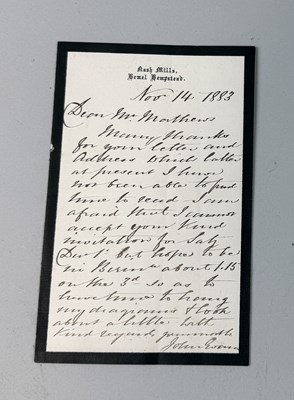 Nash Mills,
Hemel Hempsted.
Nov 14. 1883
Dear Mr Mathews
Many thanks
for your letter and
Address which latter
at present I have
not been able to find
time to read. I am
afraid that I cannot
accept your kind
invitation for Saty
Decr 1st but hope to be
in Birmm about 1.15
on the 3rd so as to
have time to hang
my diagrams & look
about a little With
kind regards yours
John Evans